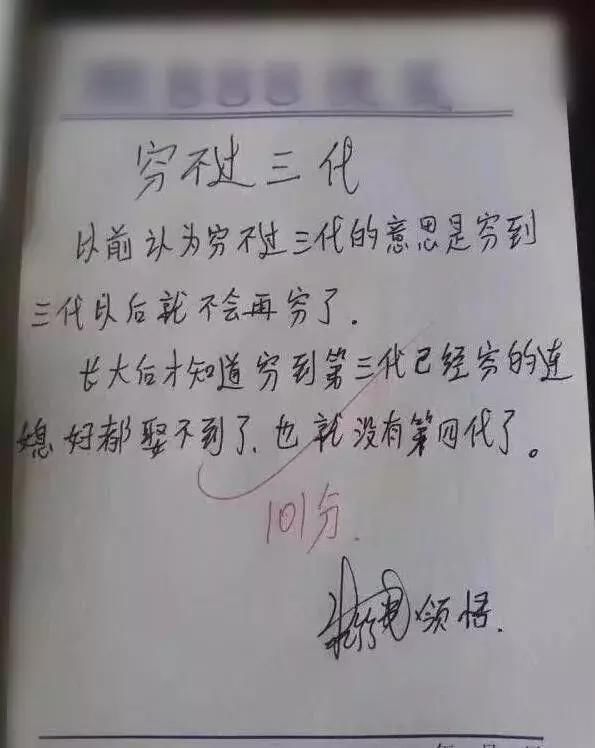 穷不过三代
以前认为穷不过三代的意思是穷到
三代以后就不会再穷了.
长大后才知道穷到第三代已经穷的连
媳妇都娶不到了、也就没有第四代了。
101分.
领悟.